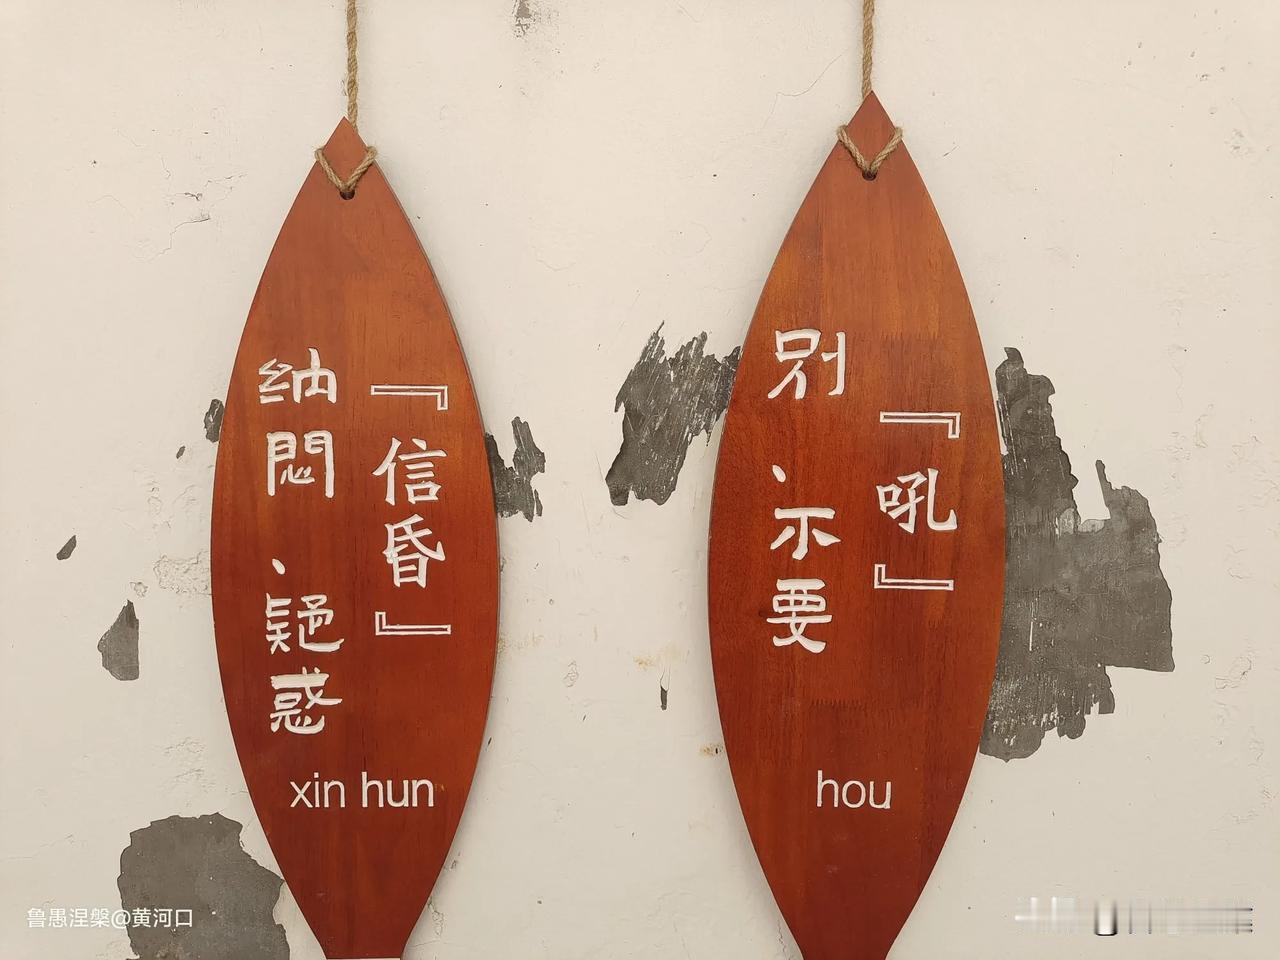 『信昏』
纳闷、疑惑
xin hun
『吼』
别、不要
hou
鲁愚涅槃@黄河口